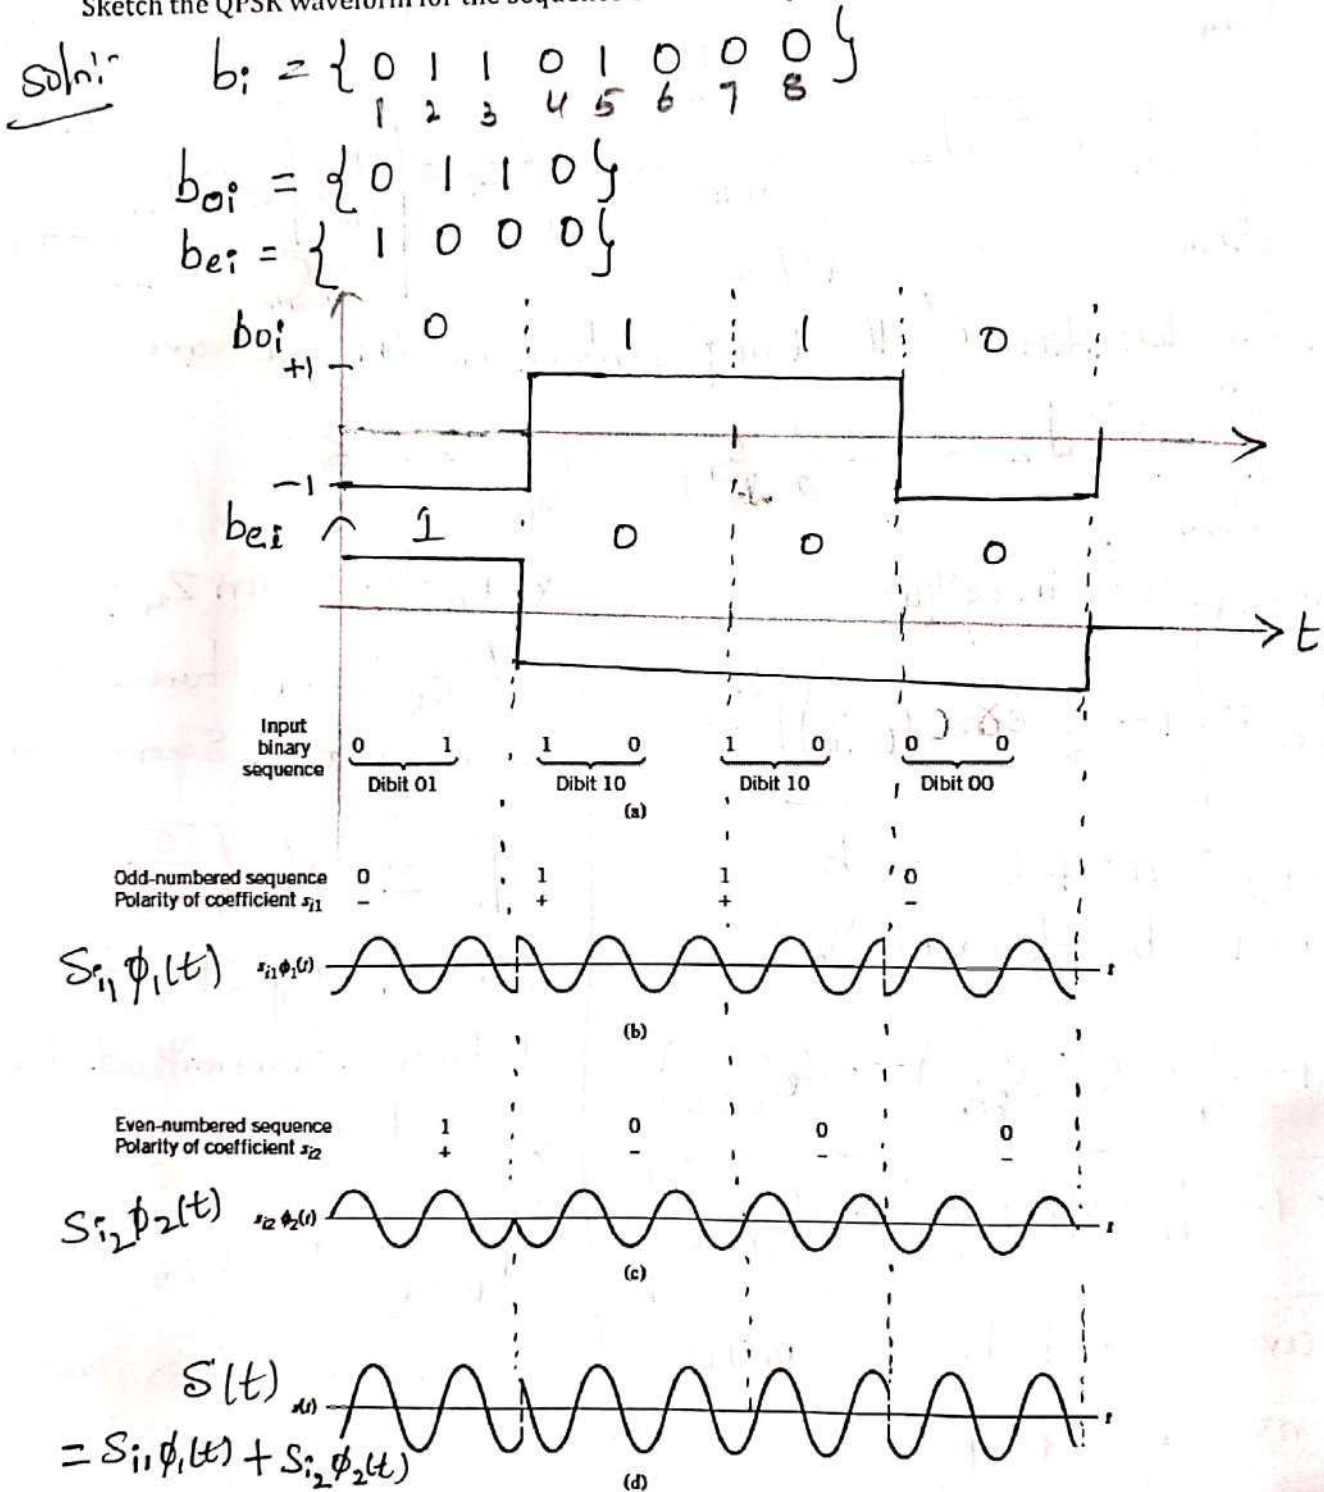 Sketch the QPSK waveform for the sequence
soln:- bi = { 0 1 1 0 1 0 0 0 }
1 2 3 4 5 6 7 8
boi = { 0 1 1 0 }
bei = { 1 0 0 0 }
boi 0 1 1 0
+1
-1
bei 1 0 0 0
t
Input binary sequence 0 1 1 0 1 0 0 0
Dibit 01 Dibit 10 Dibit 10 Dibit 00
(a)
Odd-numbered sequence 0 1 1 0
Polarity of coefficient si1 - + + -
Si1 ϕ1(t) si1ϕ1(t) t
(b)
Even-numbered sequence 1 0 0 0
Polarity of coefficient si2 + - - -
Si2 ϕ2(t) si2ϕ2(t) t
(c)
S(t) s(t) t
= Si1 ϕ1(t) + Si2 ϕ2(t)
(d)